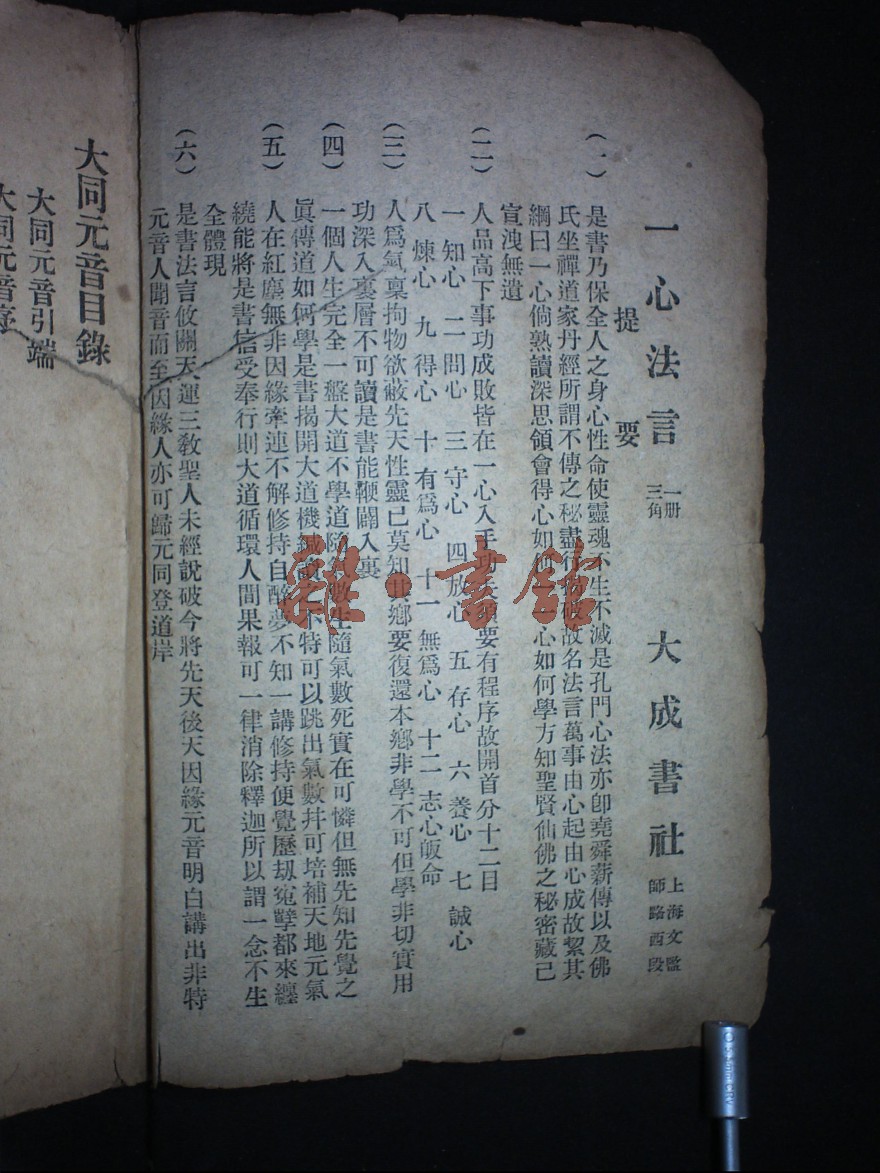 一心法言 一册 三角 大成書社 上海文監 師路西段
提要
(一) 是書乃保全人之身心性命使靈魂不生不滅是孔門心法亦卽堯舜薪傳以及佛
氏坐禪道家丹經所謂不傳之秘盡行破故名法言萬事由心起由心成故絜其
綱曰一心倘熟讀深思領會得心如何一心如何學方知聖賢仙佛之秘密藏已
宣洩無遺
(二) 人品高下事功成敗皆在一心入手功夫須要有程序故開首分十二目
一知心 二問心 三守心 四放心 五存心 六養心 七誠心
八煉心 九得心 十有爲心 十一無爲心 十二志心皈命
(三) 人爲氣稟拘物欲蔽先天性靈已莫知其鄉要復還本鄉非學不可但學非切實用
功深入裏層不可讀是書能鞭闢入裏
(四) 一個人生完全一盤大道不學道隨氣數生隨氣數死實在可憐但無先知先覺之
眞傳道如何學是書揭開大道機緘讀之不特可以跳出氣數幷可培補天地元氣
(五) 人在紅塵無非因緣牽連不解修持自酣夢不知一講修持便覺歷刼寃孽都來纏
繞能將是書信受奉行則大道循環人間果報可一律消除釋迦所以謂一念不生
全體現
(六) 是書法言攸關天運三敎聖人未經說破今將先天後天因緣元音明白講出非特
元音人聞音而至因緣人亦可歸元同登道岸
大同元音目錄
大同元音引端
大同元音序
雜·書館